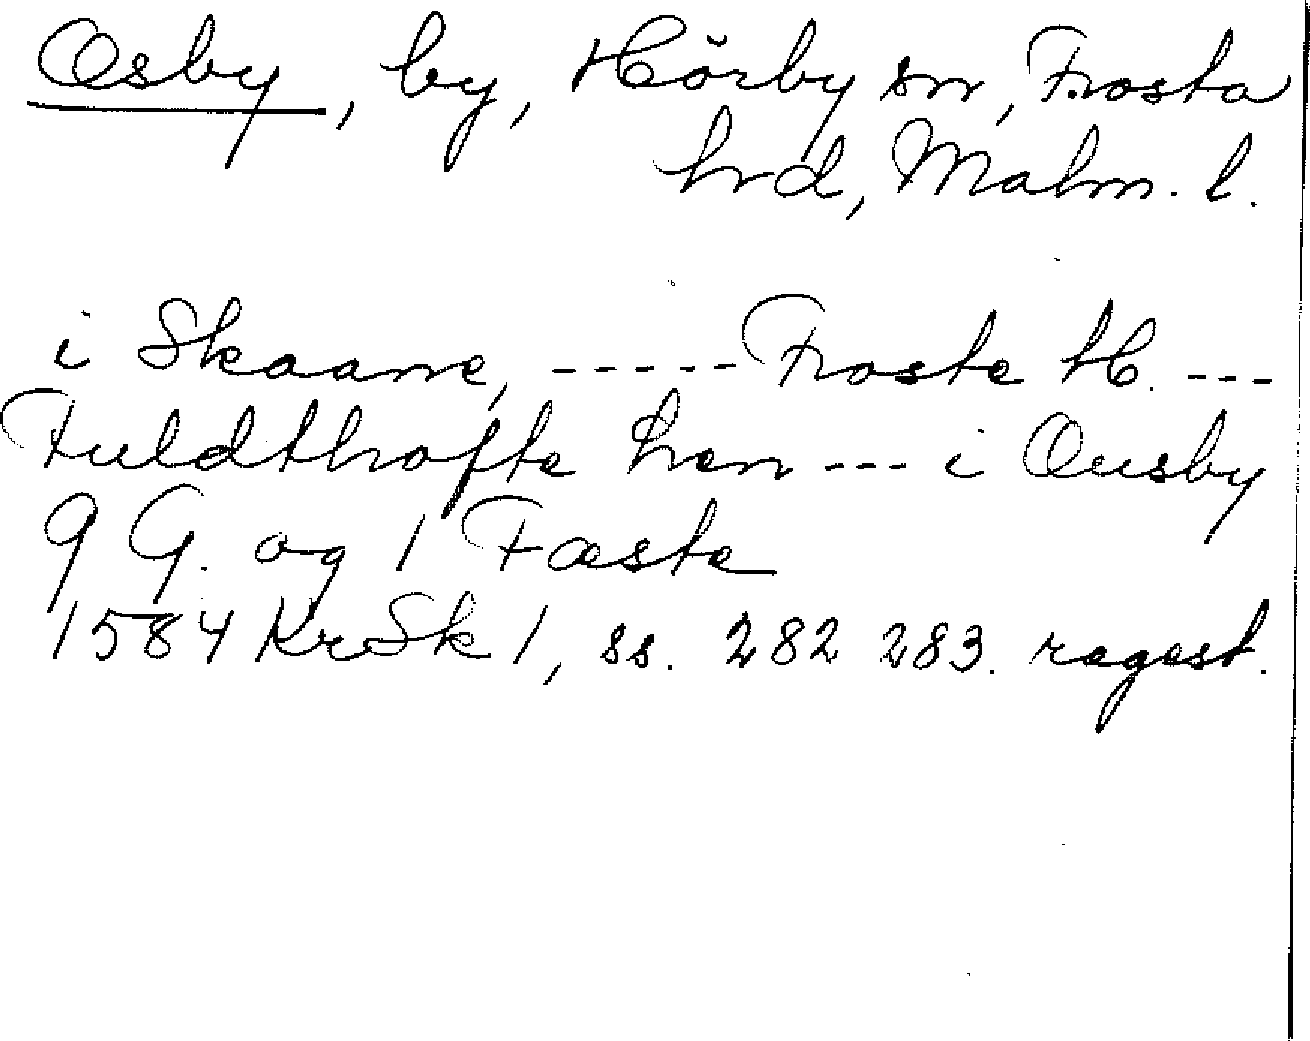 Osby, by, Hörby sn, Frosta
hrd, Malm. l.
i Skaane, ----- Froste H. ---
Fuldthofte Len --- i Ousby
9 G. og 1 Fæste
1584 KrSk 1, ss. 282 283. regest.